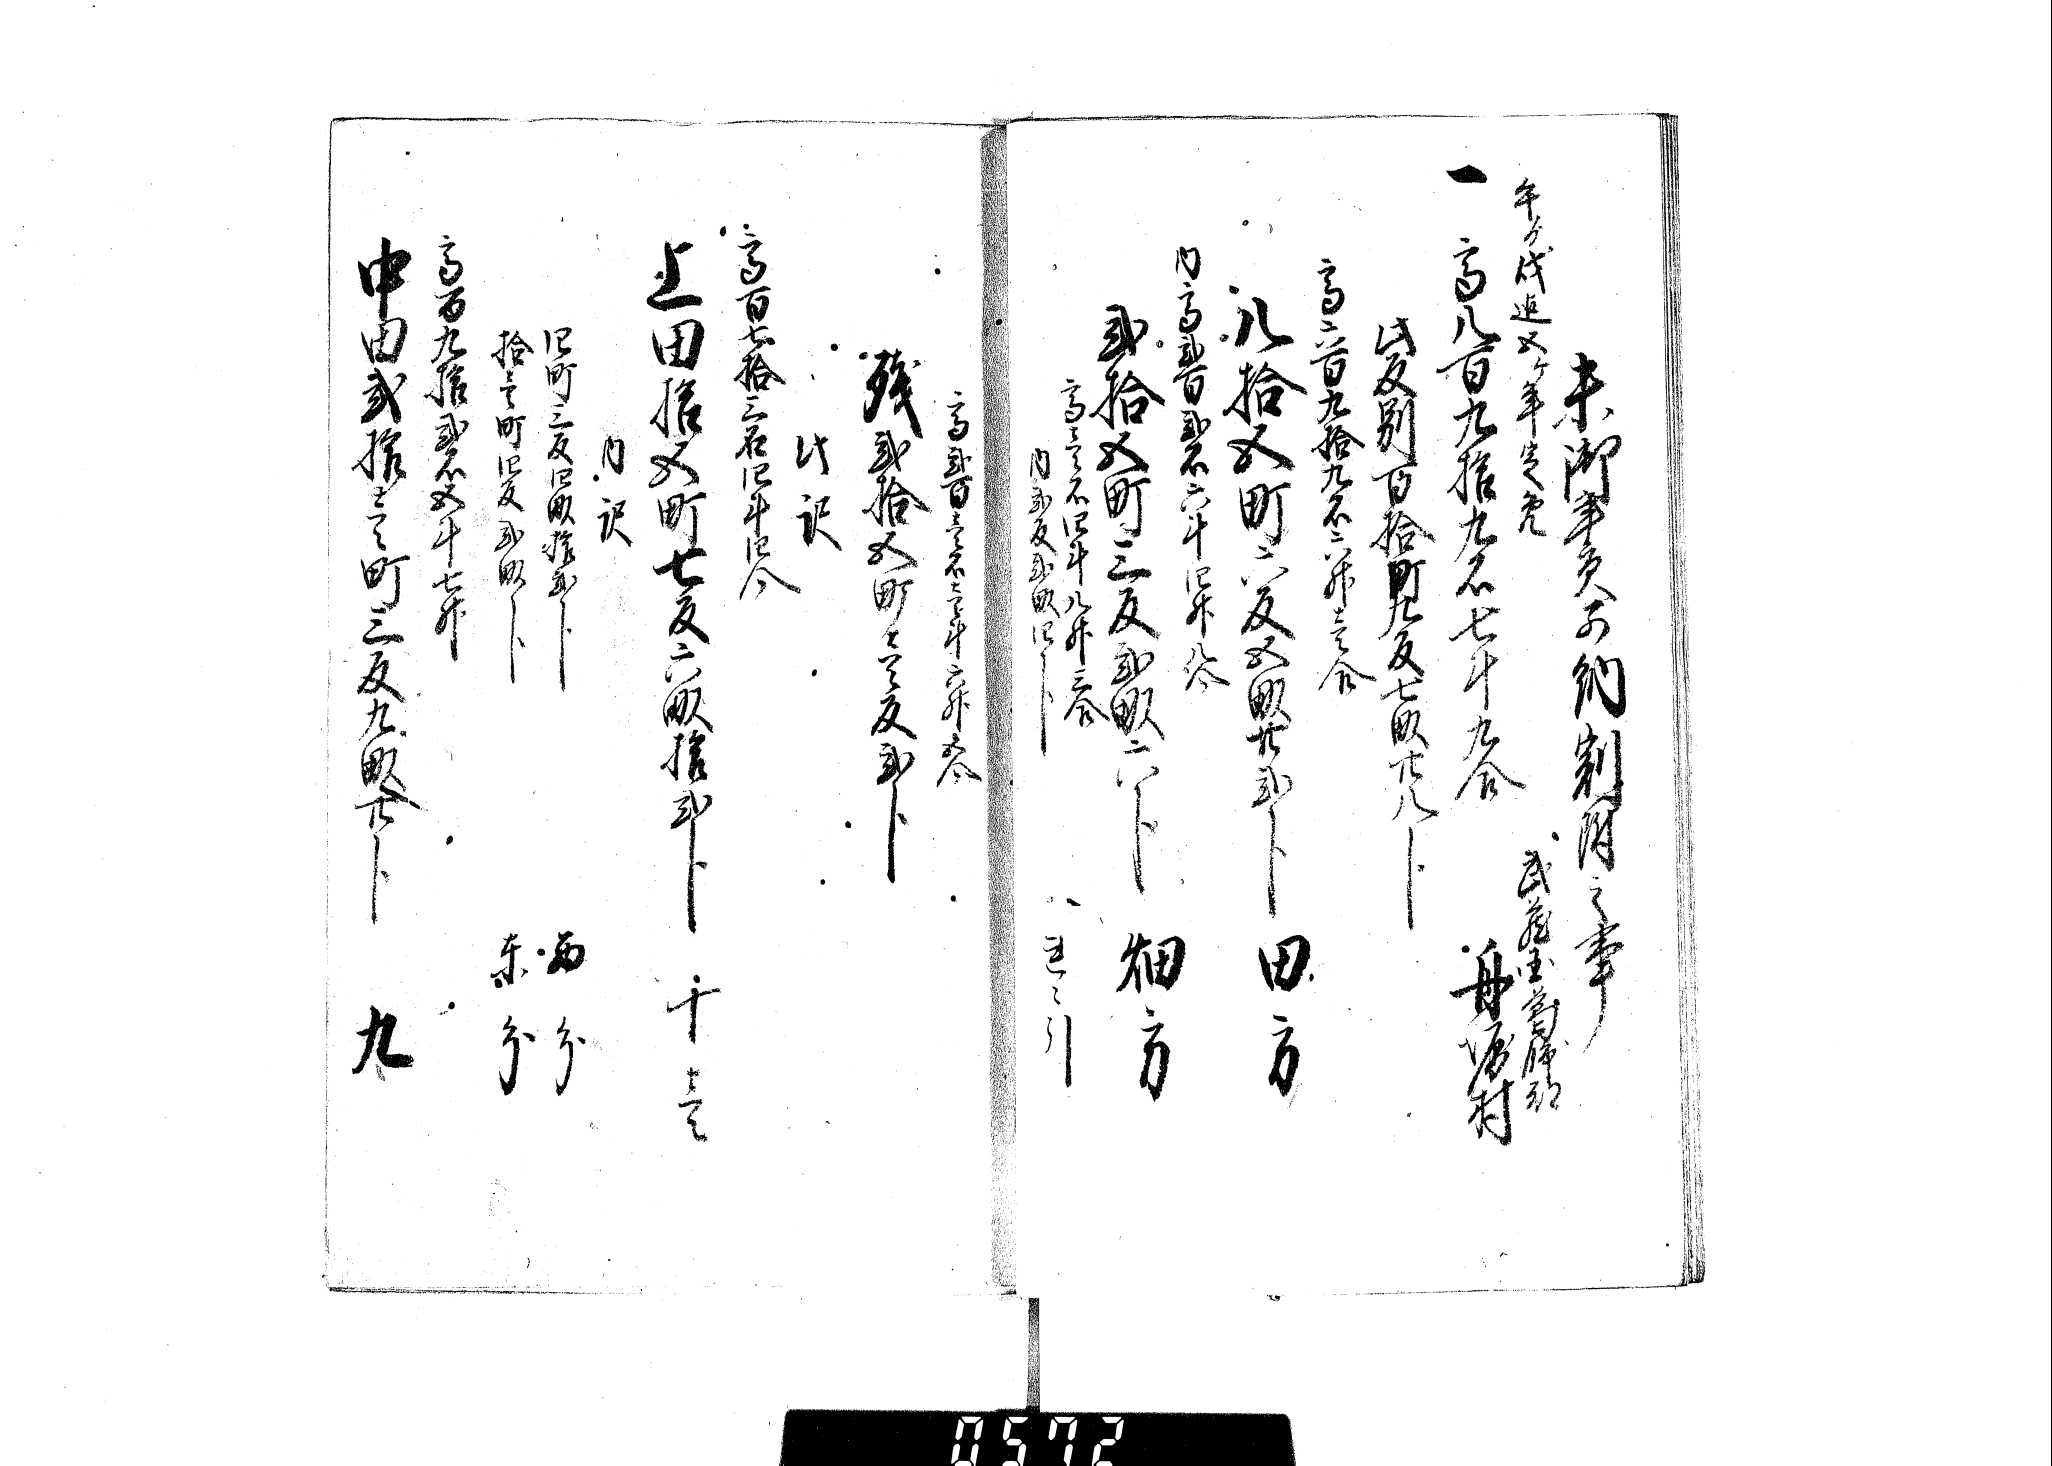 未御年貢可納割附之事
午ゟ戌迄五ケ年定免
武蔵国葛飾郡
一 高八百九拾九石七斗九合 舟堀村
此反別百拾町九反七畝廿八卜
高六百九拾九石六升壱合
八拾五町六反五畝廿弐卜 田方
内高弐百弐石六斗四升八合
弐拾五町三反弐畝六卜 畑方
高壱石四斗八升三合
内弐反弐畝四卜 引
高弐百壱石壱斗六升五合
残弐拾五町壱反弐卜
此訳
高百七拾三石四斗四合
上田拾五町七反六畝拾弐卜 十壱
内訳
四町三反四畝拾弐卜 西分
拾壱町四反弐畝卜 東分
高百九拾弐石五斗七升
中田弐拾壱町三反九畝廿卜 九
0572